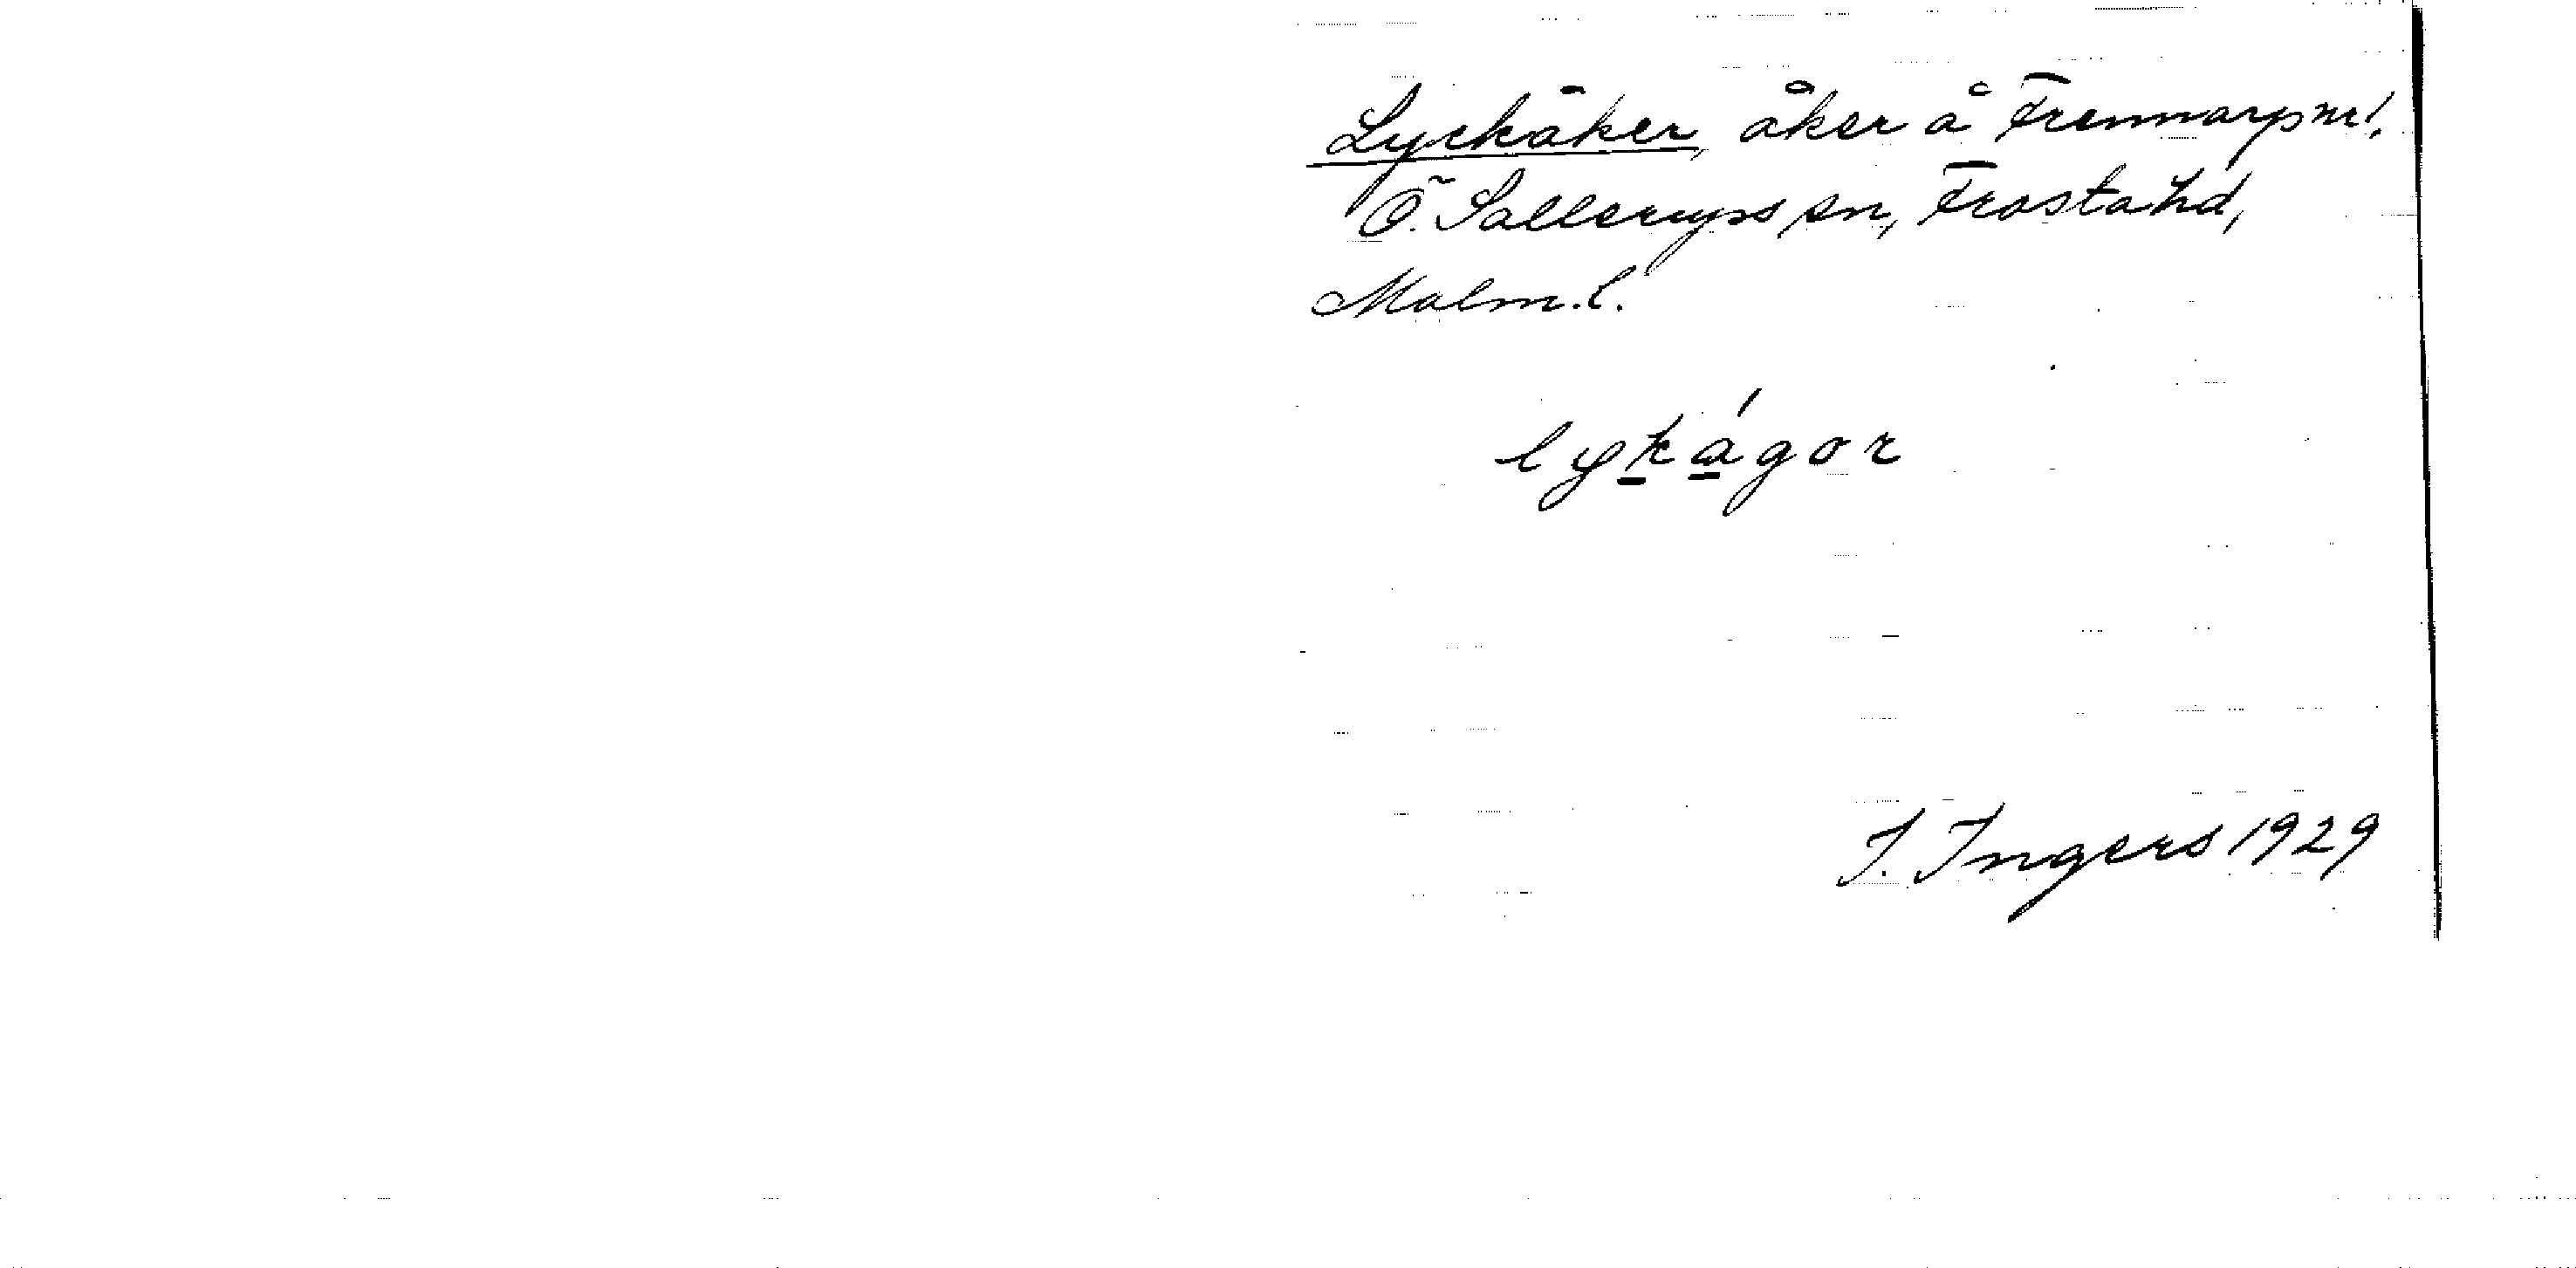 Lyckåker, åker å Fremmarp nr 1,
Ö. Sallerups sn, Frosta hd,
Malm. l.
lykágor
I. Ingers 1929